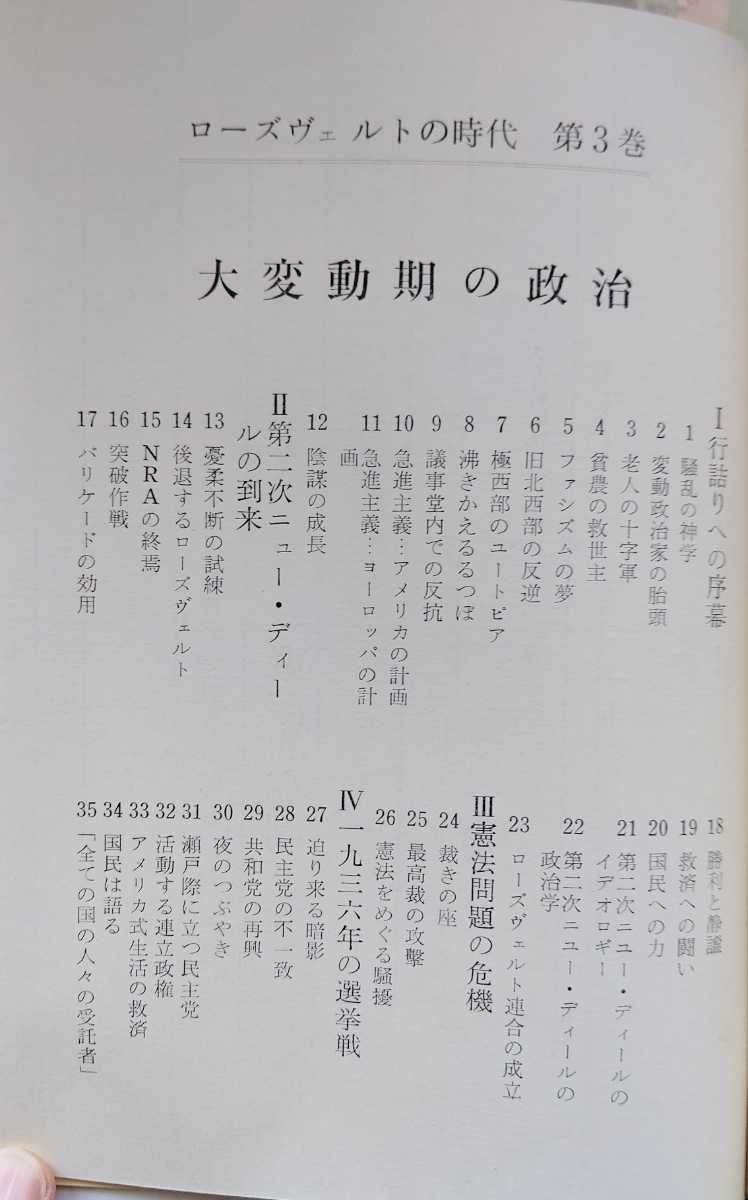 ローズヴェルトの時代 第3巻
大変動期の政治
Ⅰ 行詰りへの序幕
1 騒乱の神学
2 変動政治家の胎頭
3 老人の十字軍
4 貧農の救世主
5 ファシズムの夢
6 旧北西部の反逆
7 極西部のユートピア
8 沸きかえるるつぼ
9 議事堂内での反抗
10 急進主義…アメリカの計画
11 急進主義…ヨーロッパの計
画
12 陰謀の成長
Ⅱ 第二次ニュー・ディー
ルの到来
13 憂柔不断の試練
14 後退するローズヴェルト
15 NRAの終焉
16 突破作戦
17 バリケードの効用
18 勝利と静謐
19 救済への闘い
20 国民への力
21 第二次ニュー・ディールの
イデオロギー
22 第二次ニュー・ディールの
政治学
23 ローズヴェルト連合の成立
Ⅲ 憲法問題の危機
24 裁きの座
25 最高裁の攻撃
26 憲法をめぐる騒擾
Ⅳ 一九三六年の選挙戦
27 迫り来る暗影
28 民主党の不一致
29 共和党の再興
30 夜のつぶやき
31 瀬戸際に立つ民主党
32 活動する連立政権
33 アメリカ式生活の救済
34 国民は語る
35 「全ての国の人々の受託者」